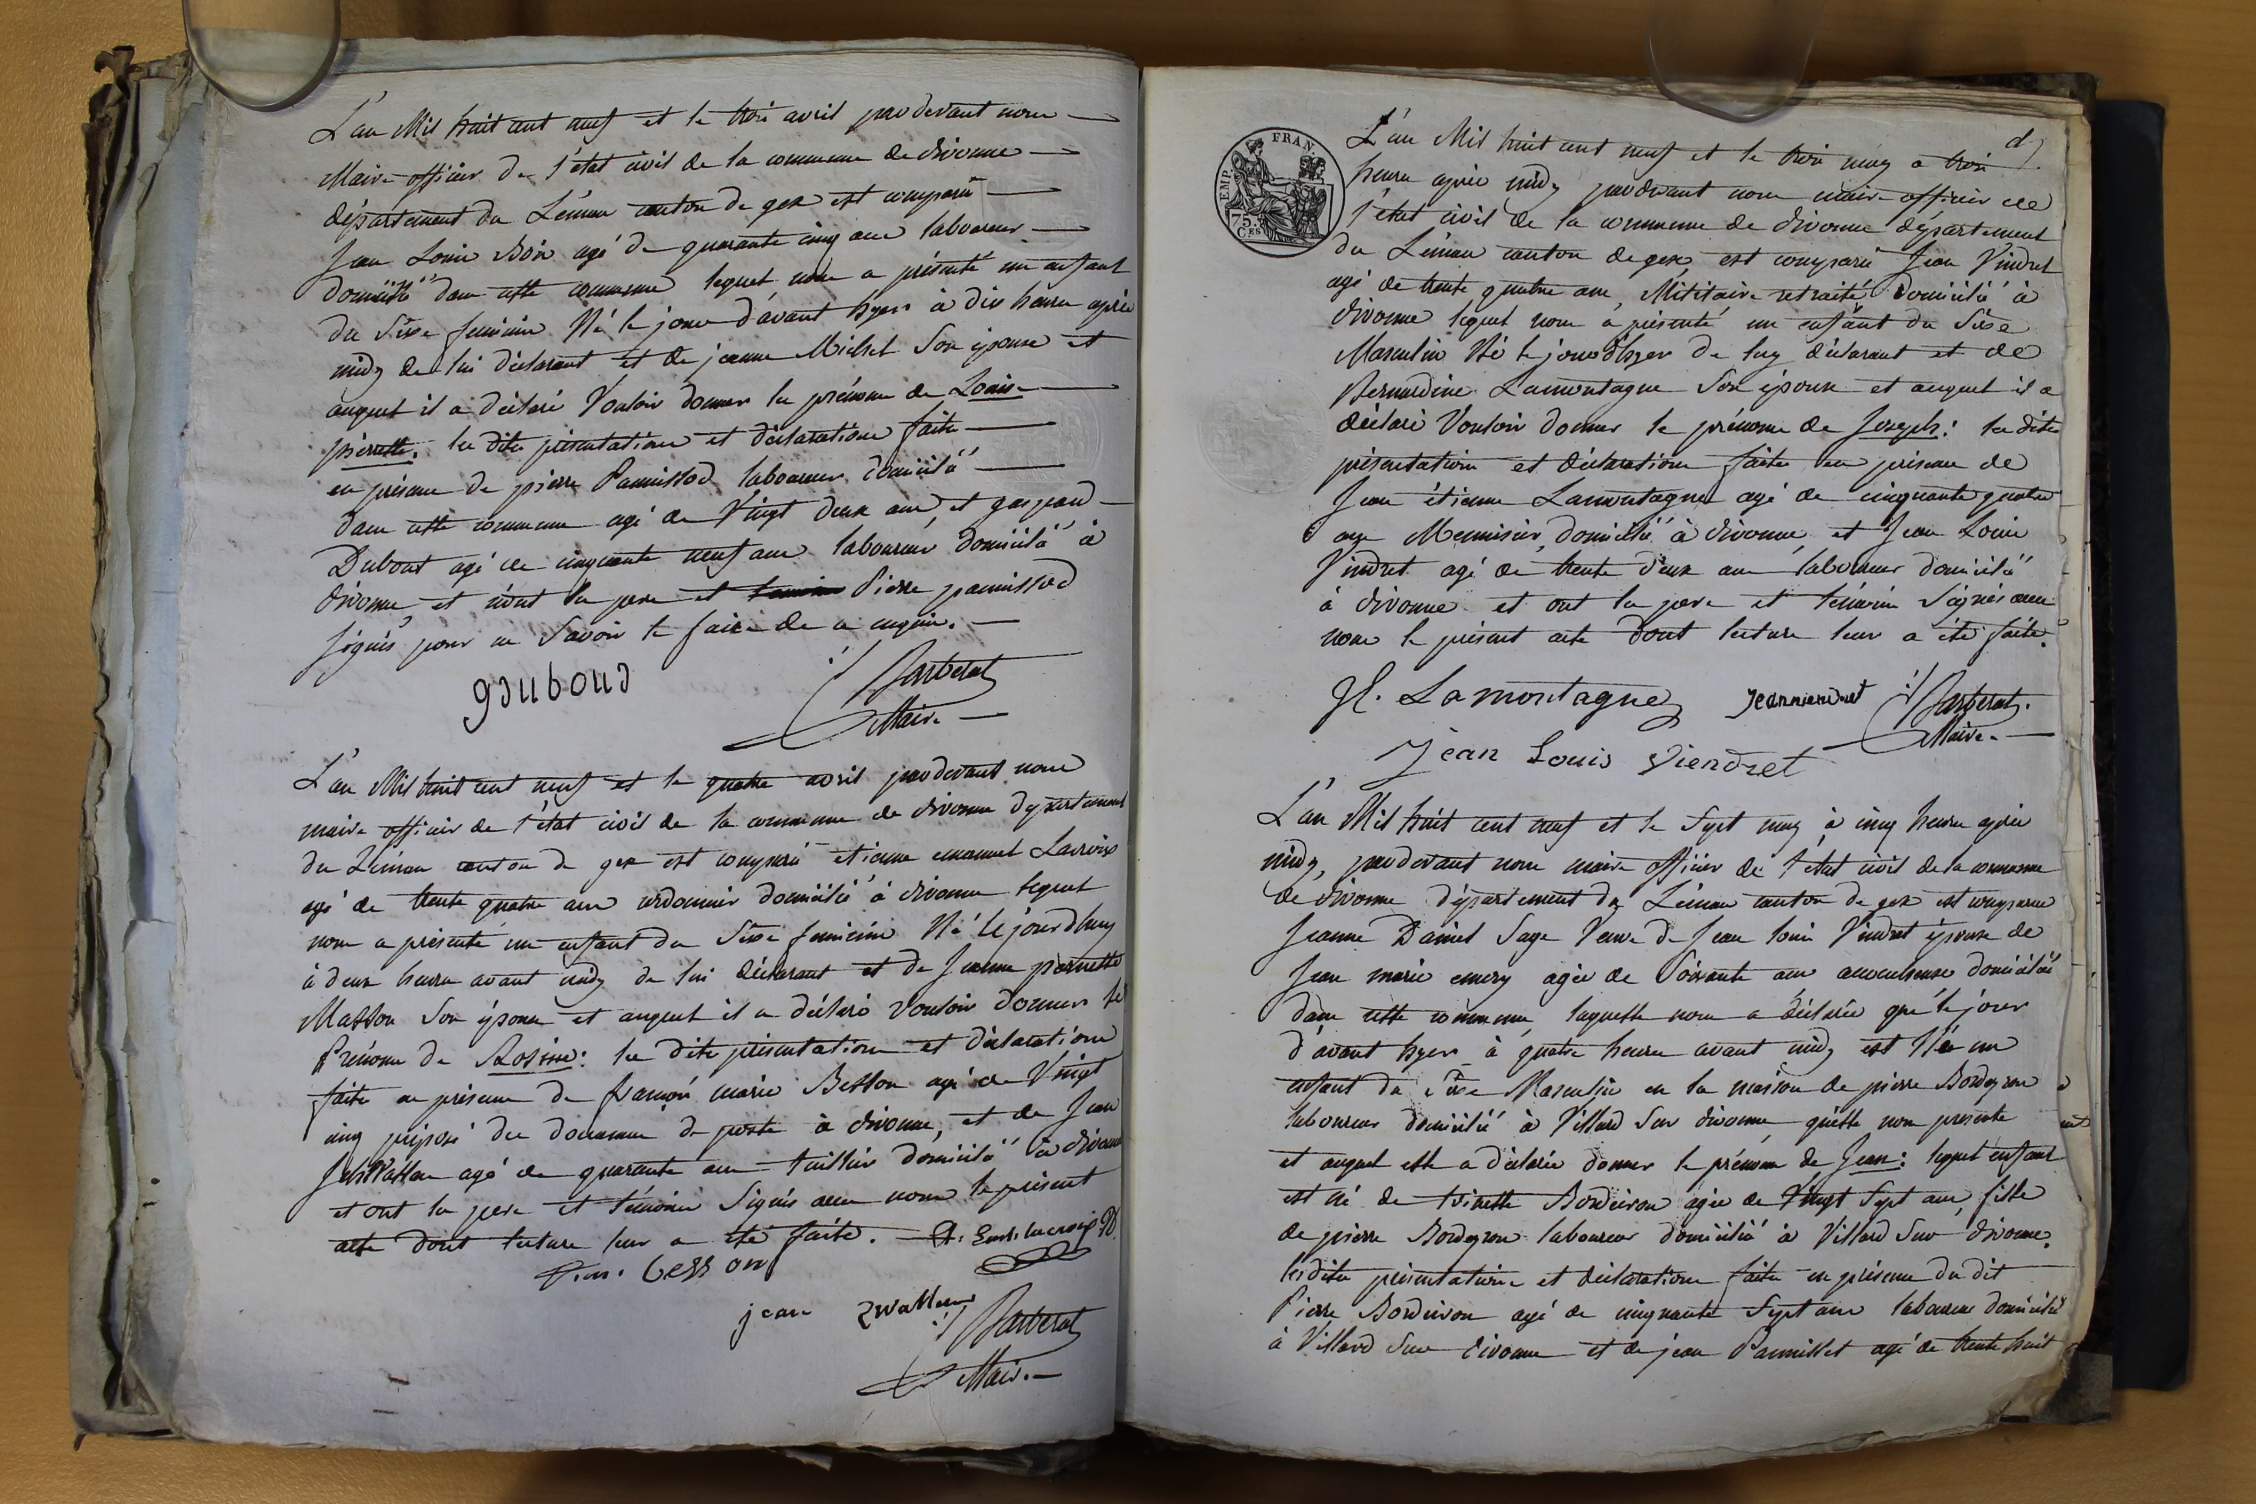 L'an Mil huit cent neuf et le trois avril pardevant nous
Maire officier de l'état civil de la commune de divonne
département du Léman canton de gex est comparu
Jean Louis Bois agé de quarante cinq ans laboureur
domicilié dans cette commune lequel nous a présenté un enfant
du Sèxe feminin Né le jour d'avant hyer à dix heures après
midy de lui déclarant et de jeanne Michel Son épouse et
auquel il a déclaré Vouloir donner les prénoms de Louise
pierrette. les dites présentations et déclarations faites
en présence de pierre Pannissod laboureur domicilié
dans cette commune agé de Vingt deux ans et gaspard
Dubout agé de cinquante neuf ans laboureur domicilié à
divonne, et n'ont les pere et Pierre pannissod
Signés pour ne Savoir le faire de ce enquis.
gduboud
Barberat
Maire
L'an Mil huit cent neuf et le quatre avril pardevant nous
maire officier de l'état civil de la commune de divonne département
du Léman canton de gex est comparu etienne emanuel Lacroix
agé de trente quatre ans cordonnier domicilié à divonne lequel
nous a présenté un enfant du Sèxe feminin Né le jourdhuy
à deux heures avant midy de lui déclarant et de Jeanne pernette
Masson Son épouse et auquel il a déclaré vouloir donner le
Prénome de Rosine: les dites présentations et déclarations
faites en présence de françois marie Besson agé de Vingt
cinq préposé des douannes de poste à divonne, et de Jean
agé de quarante ans tuillier domicilié à divonne
et ont les pere et témoins Signés avec nous le présent
acte dont lecture leur a été faite. Et. Em. lacroix
f.m. besson
jean zwallen
Barberat
Maire
L'an Mil huit cent neuf et le trois may a trois
heures après midy pardevant nous maire officier de
l'état civil de la commune de divonne département
du Léman canton de gex, est comparu Jean Vindret
agé de trente quatre ans, Militaire retraité domicilié à
divonne lequel nous a présenté un enfant du Sèxe
Masculin Né le jour d'hyer de luy déclarant et de
Bernardine Lamontagne Son épouse et auquel il a
déclaré Vouloir donner le prénome de Joseph: les dites
présentations et déclarations faites en présence de
Jean étienne Lamontagne agé de cinquante quatre
ans Menuisier, domicilié à divonne, et Jean Louis
Vindret agé de trente deux ans laboureur domicilié
à divonne et ont les pere et témoins Signés avec
nous le présent acte dont lecture leur a été faite.
EMP. FRAN.
75.
CES
Lamontagne
Barberat
Maire
Jean Louis Viendret
L'an Mil huit cent neuf et le Sept may à cinq heures après
midy, pardevant nous maire officier de l'état civil de la commune
de divonne département du Léman canton de gex est comparue
Jeanne Daniel Sage Veuve de Jean Louis Vindret épouse de
Jean marie emery agée de Soixante ans accoucheuse domiciliée
dans cette commune, laquelle nous a déclarée que le jour
d'avant hyer à quatre heures avant midy est Née un
enfant du Sèxe Masculin en la maison de pierre Bordeyron
laboureur domicilié à Villard Sur divonne, qu'elle nous presente
et auquel elle a déclarée donner le prénome de Jean: lequel enfant
est né de toinette Bordeiron agée de Vingt Sept ans, fille
de pierre Bordeyron laboureur domicilié à Villard Sur divonne.
les dites présentations et déclarations faites en présence du dit
Pierre Bordeiron agé de cinquante Sept ans laboureur domicilié
à Villard Sur divonne et de jean Pannillet agé de trente huit